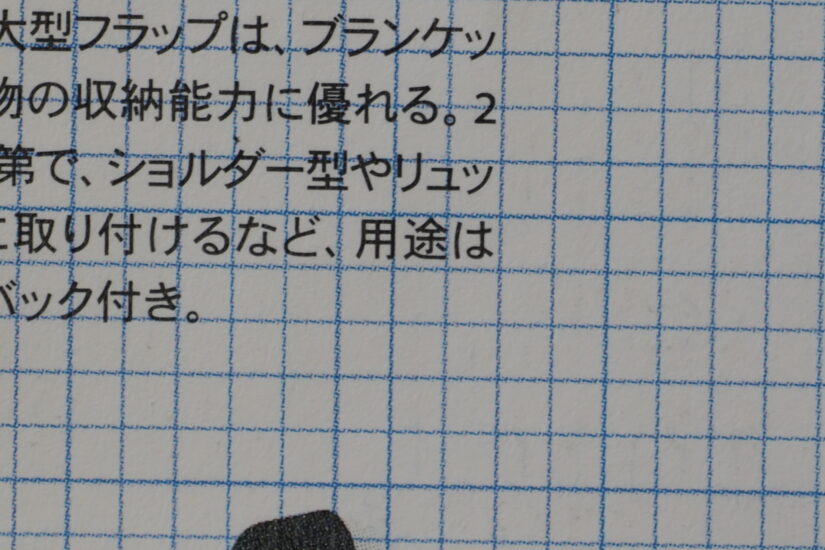 大型フラップは、ブランケッ
物の収納能力に優れる。2
第で、ショルダー型やリュッ
に取り付けるなど、用途は
バック付き。